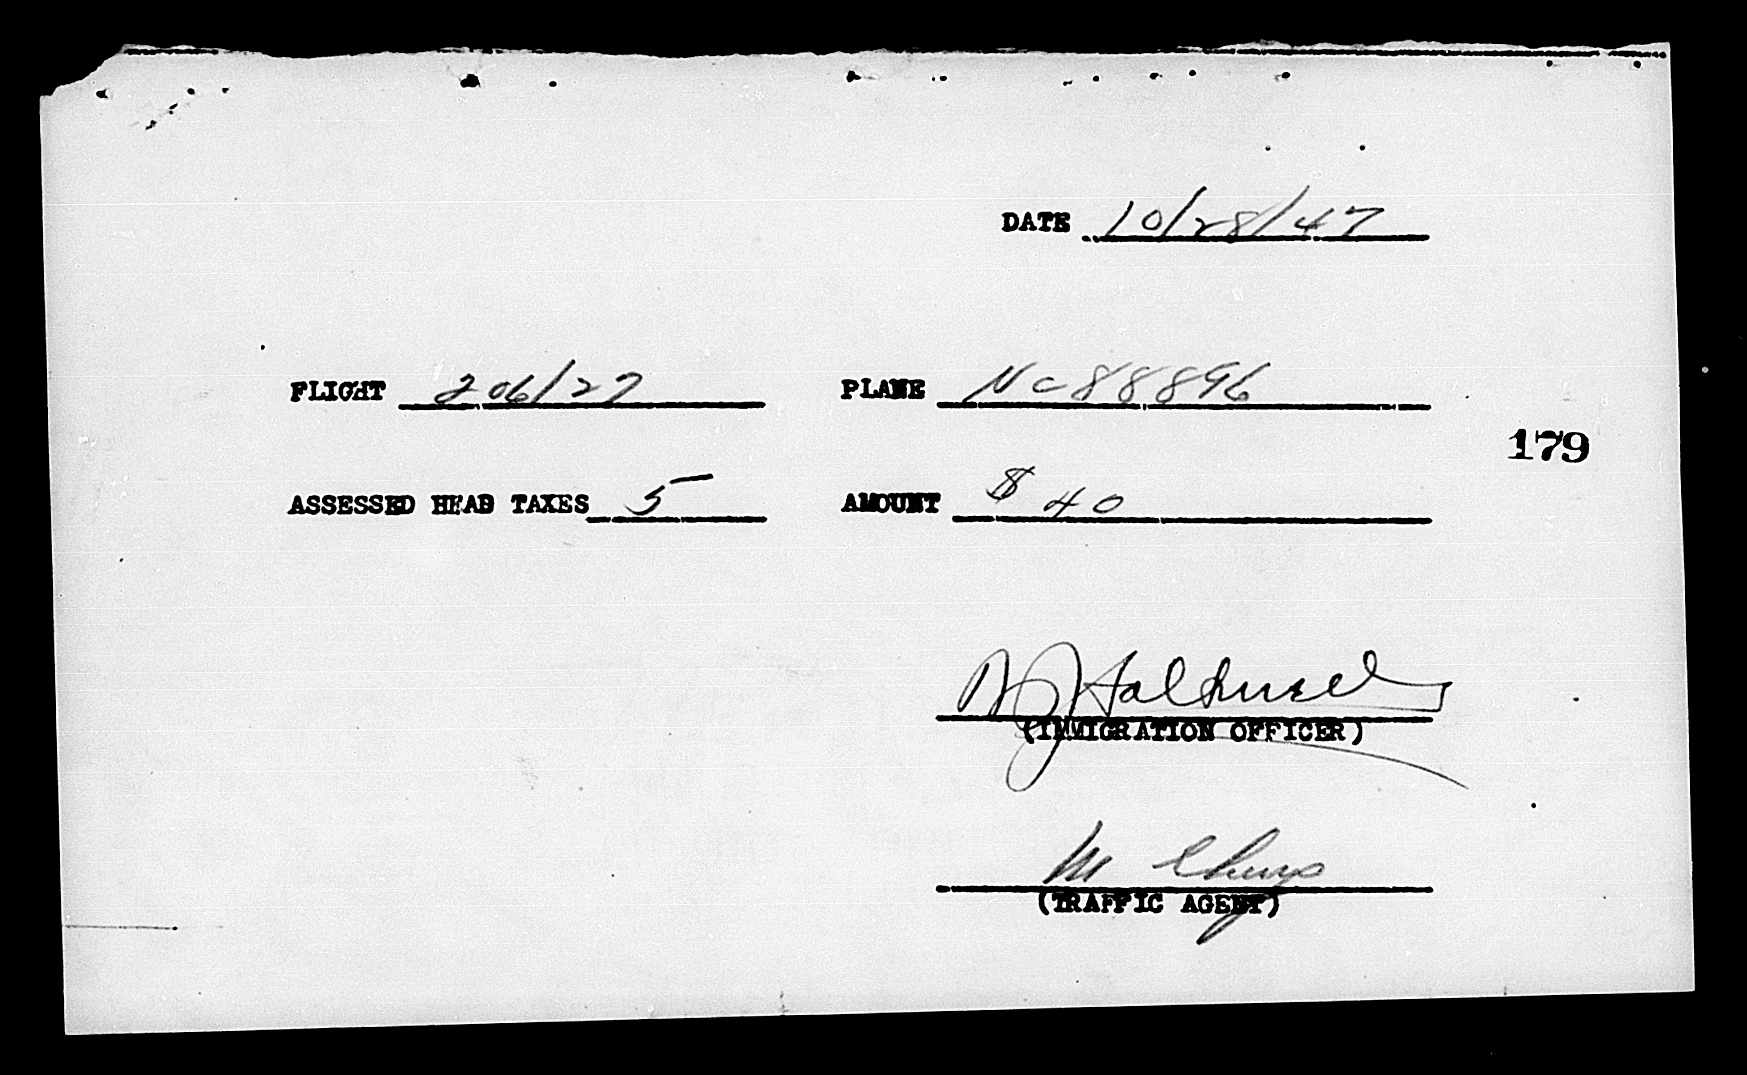 DATE 10/28/47
FLIGHT 206/27 PLANE NC88896
179
ASSESSED HEAD TAXES 5 AMOUNT $40
(IMMIGRATION OFFICER)
M
(TRAFFIC AGENT)